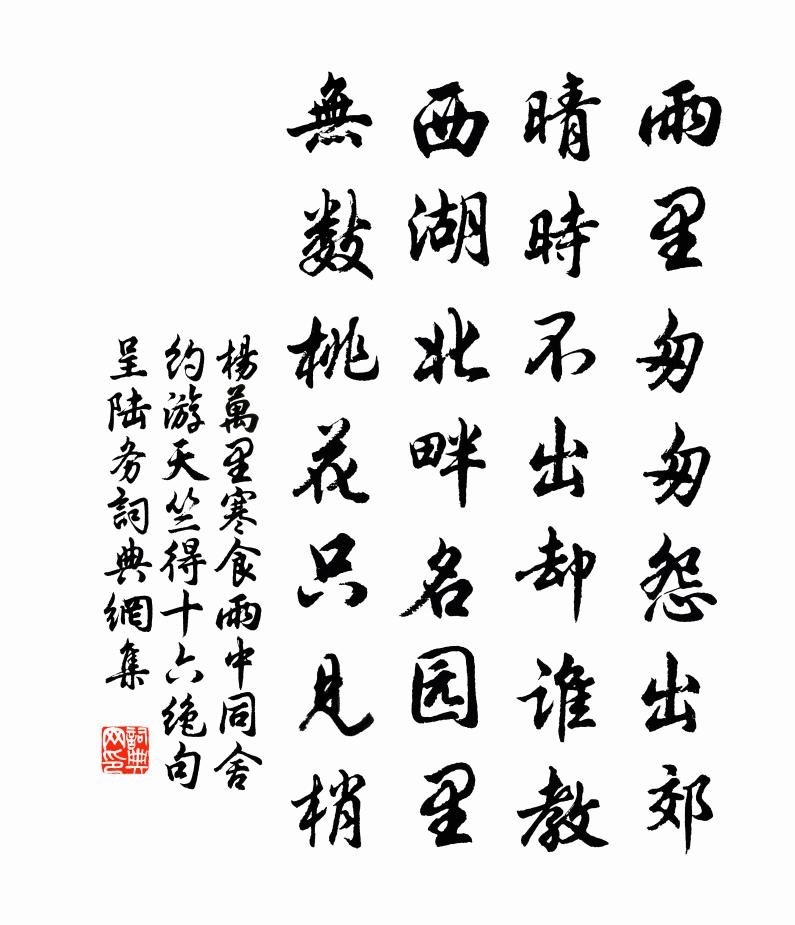 雨里匆匆怨出郊
晴時不出却谁教
西湖北畔名园里
無数桃花只見梢
楊萬里寒食雨中同舍
约游天竺得十六绝句
呈陆务詞典網集
詞典网印